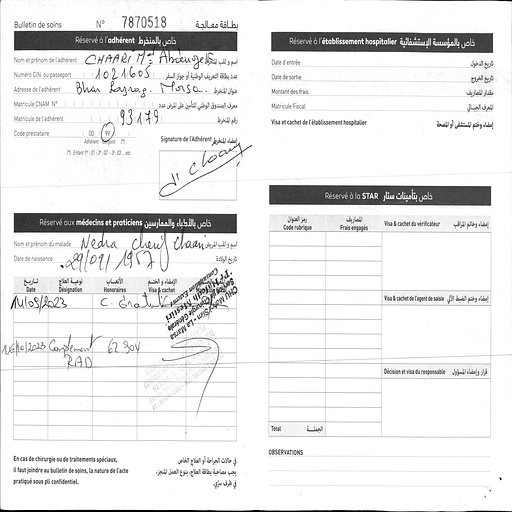 Bulletin de soins N° 7870518 بطاقة معالجة
Réservé à l'adhérent خاص بالمنخرط
Nom et prénom de l'adhérent CHAARI Med
Numéro CIN ou passeport 1021605 عدد بطاقة التعريف الوطنية أو جواز السفر
Adresse de l'adhérent عنوان المنخرط
Matricule CNAM N° معرف الصندوق الوطني للتأمين على المرض عدد
Matricule de l'adhérent 93179 رقم المنخرط
Code prestataire 00 99
Adhérent 75
Signature de l'Adhérent إمضاء المنخرط
Réservé aux médecins et praticiens خاص بالأطباء والممارسين
Nom et prénom du malade Nedra Cherif Chaari اسم و لقب المريض
Date de naissance 29/01/1957 تاريخ الولادة
تاريخ Date
نوعية العلاج Désignation
الأتعاب Honoraires
الإمضاء و الختم Visa & cachet
14/09/2023 C. Gratuit
16/10/2023 Complement 62.304
RAD
En cas de chirurgie ou de traitements spéciaux,
il faut joindre au bulletin de soins, la nature de l'acte
pratiqué sous pli confidentiel.
في حالات الجراحة أو العلاج الخاص
يجب مصاحبة بطاقة العلاج، بنوع العمل المنجز،
في ظرف سري.
Réservé à l'établissement hospitalier خاص بالمؤسسة الإستشفائية
Date d'entrée تاريخ الدخول
Date de sortie تاريخ الخروج
Montant des frais مقدار المصاريف
Matricule Fiscal المعرف الجبائي
Visa et cachet de l'établissement hospitalier إمضاء وختم المستشفى أو المصحة
Réservé à la STAR خاص بتأمينات ستار
رمز العنوان Code rubrique
المصاريف Frais engagés
Visa & cachet du vérificateur إمضاء وختم المراقب
Visa & cachet de l'agent de saisie
Décision et visa du responsable قرار وإمضاء المسؤول
Total الجملة
OBSERVATIONS